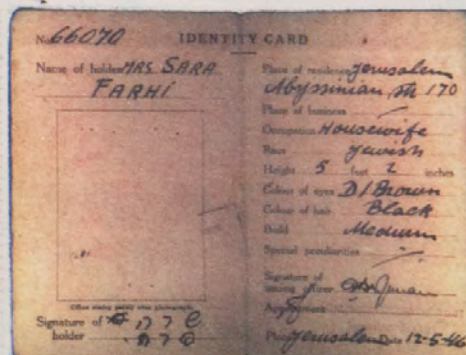 No. 66070
IDENTITY CARD
Name of holder MRS SARA
FARHI
Office stamp partly over photograph.
Signature of
holder
Place of residence Jerusalem
Abyssinian, Str 170
Place of business
Occupation Housewife
Race Jewish
Height 5 feet 2 inches
Colour of eyes D/Brown
Colour of hair Black
Build Medium
Special peculiarities
Signature of
issuing officer
Appointment
Place Jerusalem Date 12-5-46